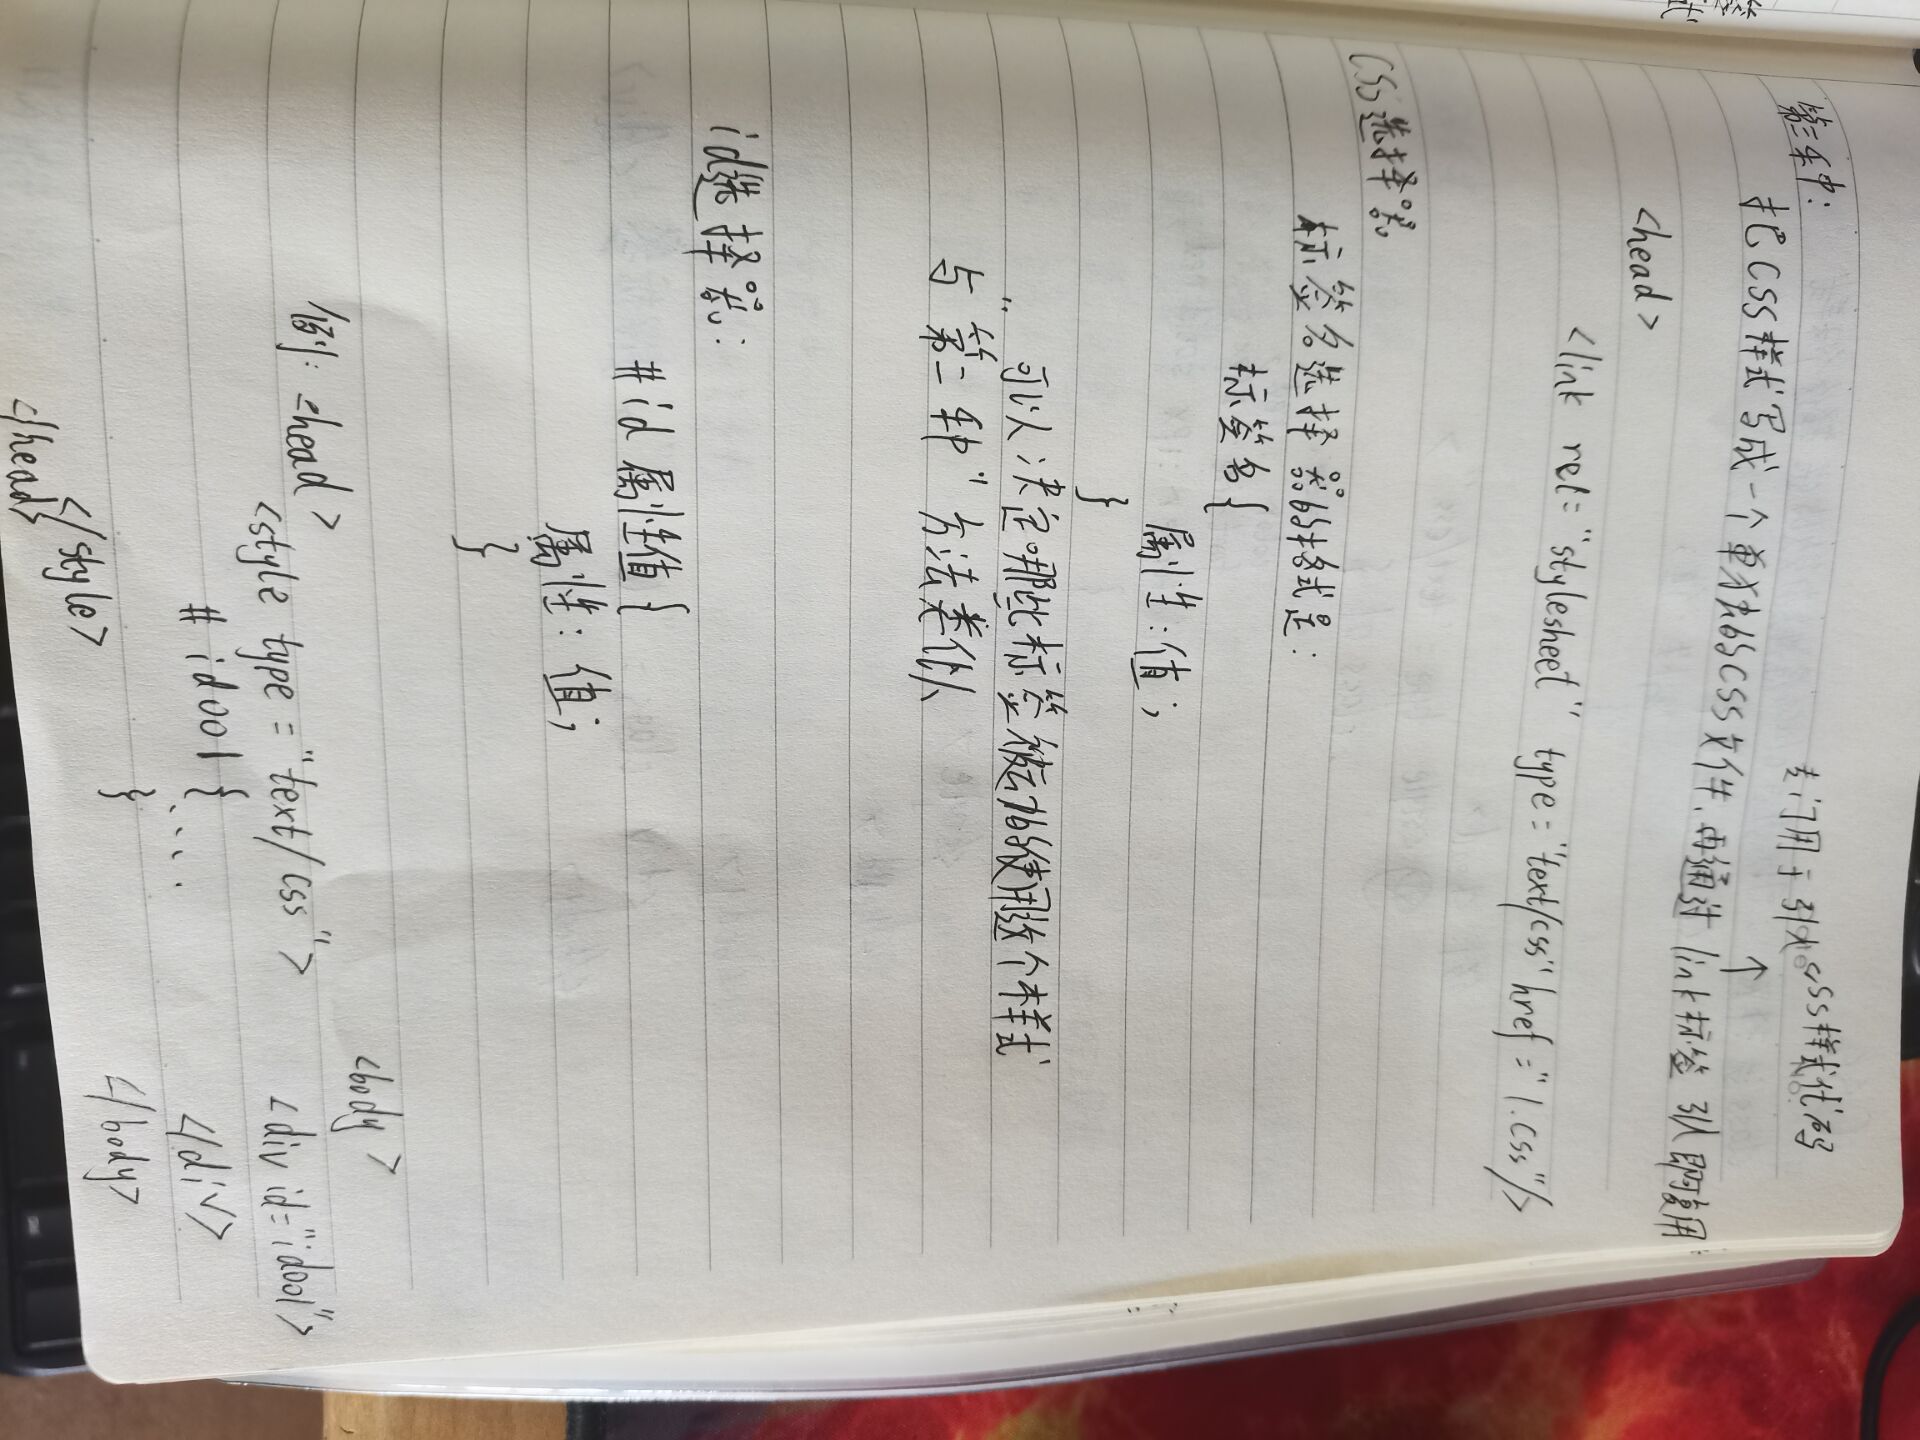 专门用于引入css样式代码
第三种:
把CSS样式写成一个单独的CSS文件,再通过link标签引入即可复用
↑
<head>
<link rel="stylesheet" type="text/css" href="1.css"/>
CSS选择器
标签名选择器的格式是:
标签名{
属性:值;
}
可以决定哪些标签被动的使用这个样式
与"第二种"方法类似
id选择器:
#id属性值{
属性:值;
}
例: <head>
<style type="text/css">
#id001{
...
}
</style>
</head>
<body>
<div id="id001">
</div>
</body>